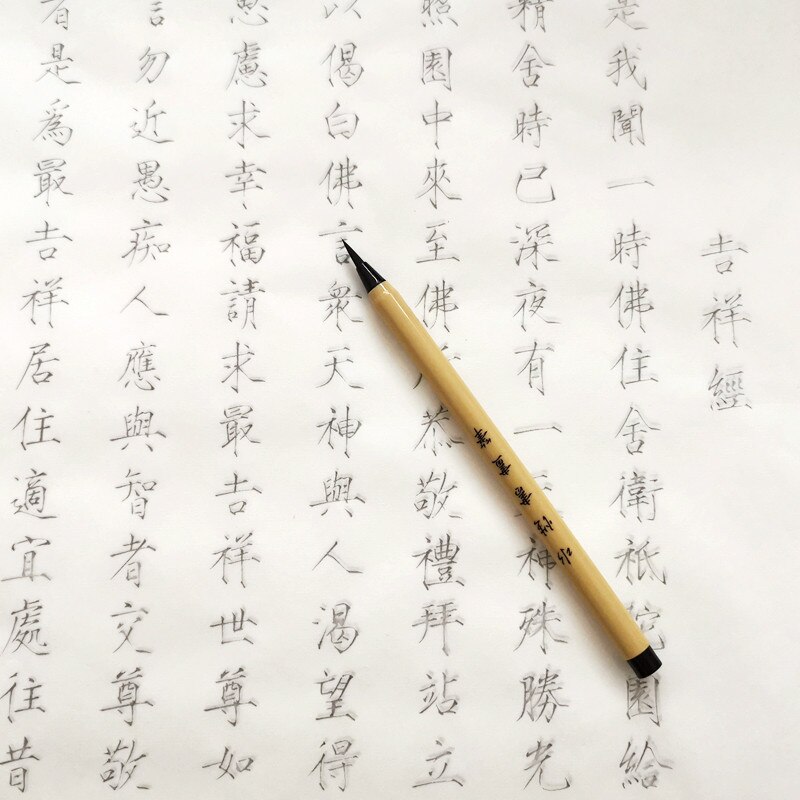 吉祥經
是我聞一時佛住舍衛祇院園給
精舍時已深夜有一神殊勝光
照園中來至佛恭敬禮拜站立
以偈白佛言眾天神與人渴望得
思慮求幸福請求最吉祥世尊如
言勿近愚痴人應與智者交尊敬
者是爲最吉祥居住適宜處往昔